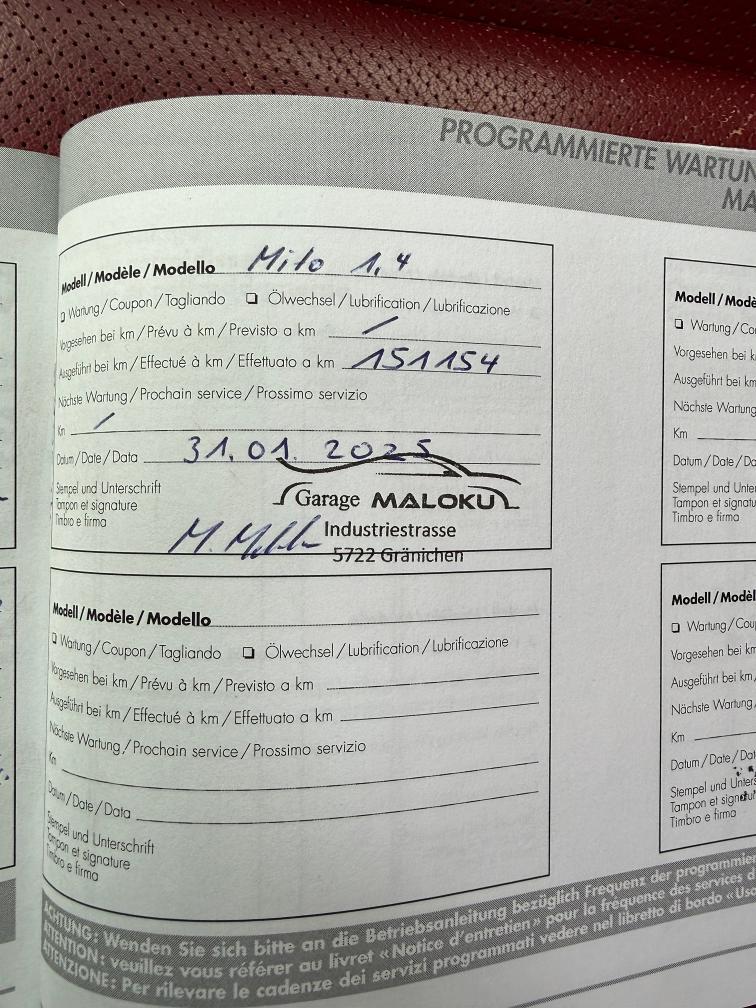 PROGRAMMIERTE WARTUN
MA
Modell/Modèle/Modello Mito 1,4
❏ Wartung/Coupon/Tagliando ❏ Ölwechsel/Lubrification/Lubrificazione
Vorgesehen bei km/Prévu à km/Previsto a km /
Ausgeführt bei km/Effectué à km/Effettuato a km 151154
Nächste Wartung/Prochain service/Prossimo servizio
Km /
Datum/Date/Data 31.01.2025
Stempel und Unterschrift
Tampon et signature
Timbro e firma
Garage MALOKU
Industriestrasse
5722 Gränichen
Modell/Modèle/Modello
❏ Wartung/Coupon/Tagliando ❏ Ölwechsel/Lubrification/Lubrificazione
Vorgesehen bei km/Prévu à km/Previsto a km
Ausgeführt bei km/Effectué à km/Effettuato a km
Nächste Wartung/Prochain service/Prossimo servizio
Km
Datum/Date/Data
Stempel und Unterschrift
Tampon et signature
Timbro e firma
Modell/Modè
❏ Wartung/Co
Vorgesehen bei k
Ausgeführt bei km
Nächste Wartung
Km
Datum/Date/D
Stempel und Unte
Tampon et signatu
Timbro e firma
Modell/Modèl
❏ Wartung/Cou
Vorgesehen bei km
Ausgeführt bei km/
Nächste Wartung/
Km
Datum/Date/Dat
Stempel und Unters
Tampon et signatu
Timbro e firma
ACHTUNG: Wenden Sie sich bitte an die Betriebsanleitung bezüglich Frequenz der programmier
ATTENTION: veuillez vous référer au livret «Notice d'entretien» pour la fréquence des services d
ATTENZIONE: Per rilevare le cadenze dei servizi programmati vedere nel libretto di bordo «Uso